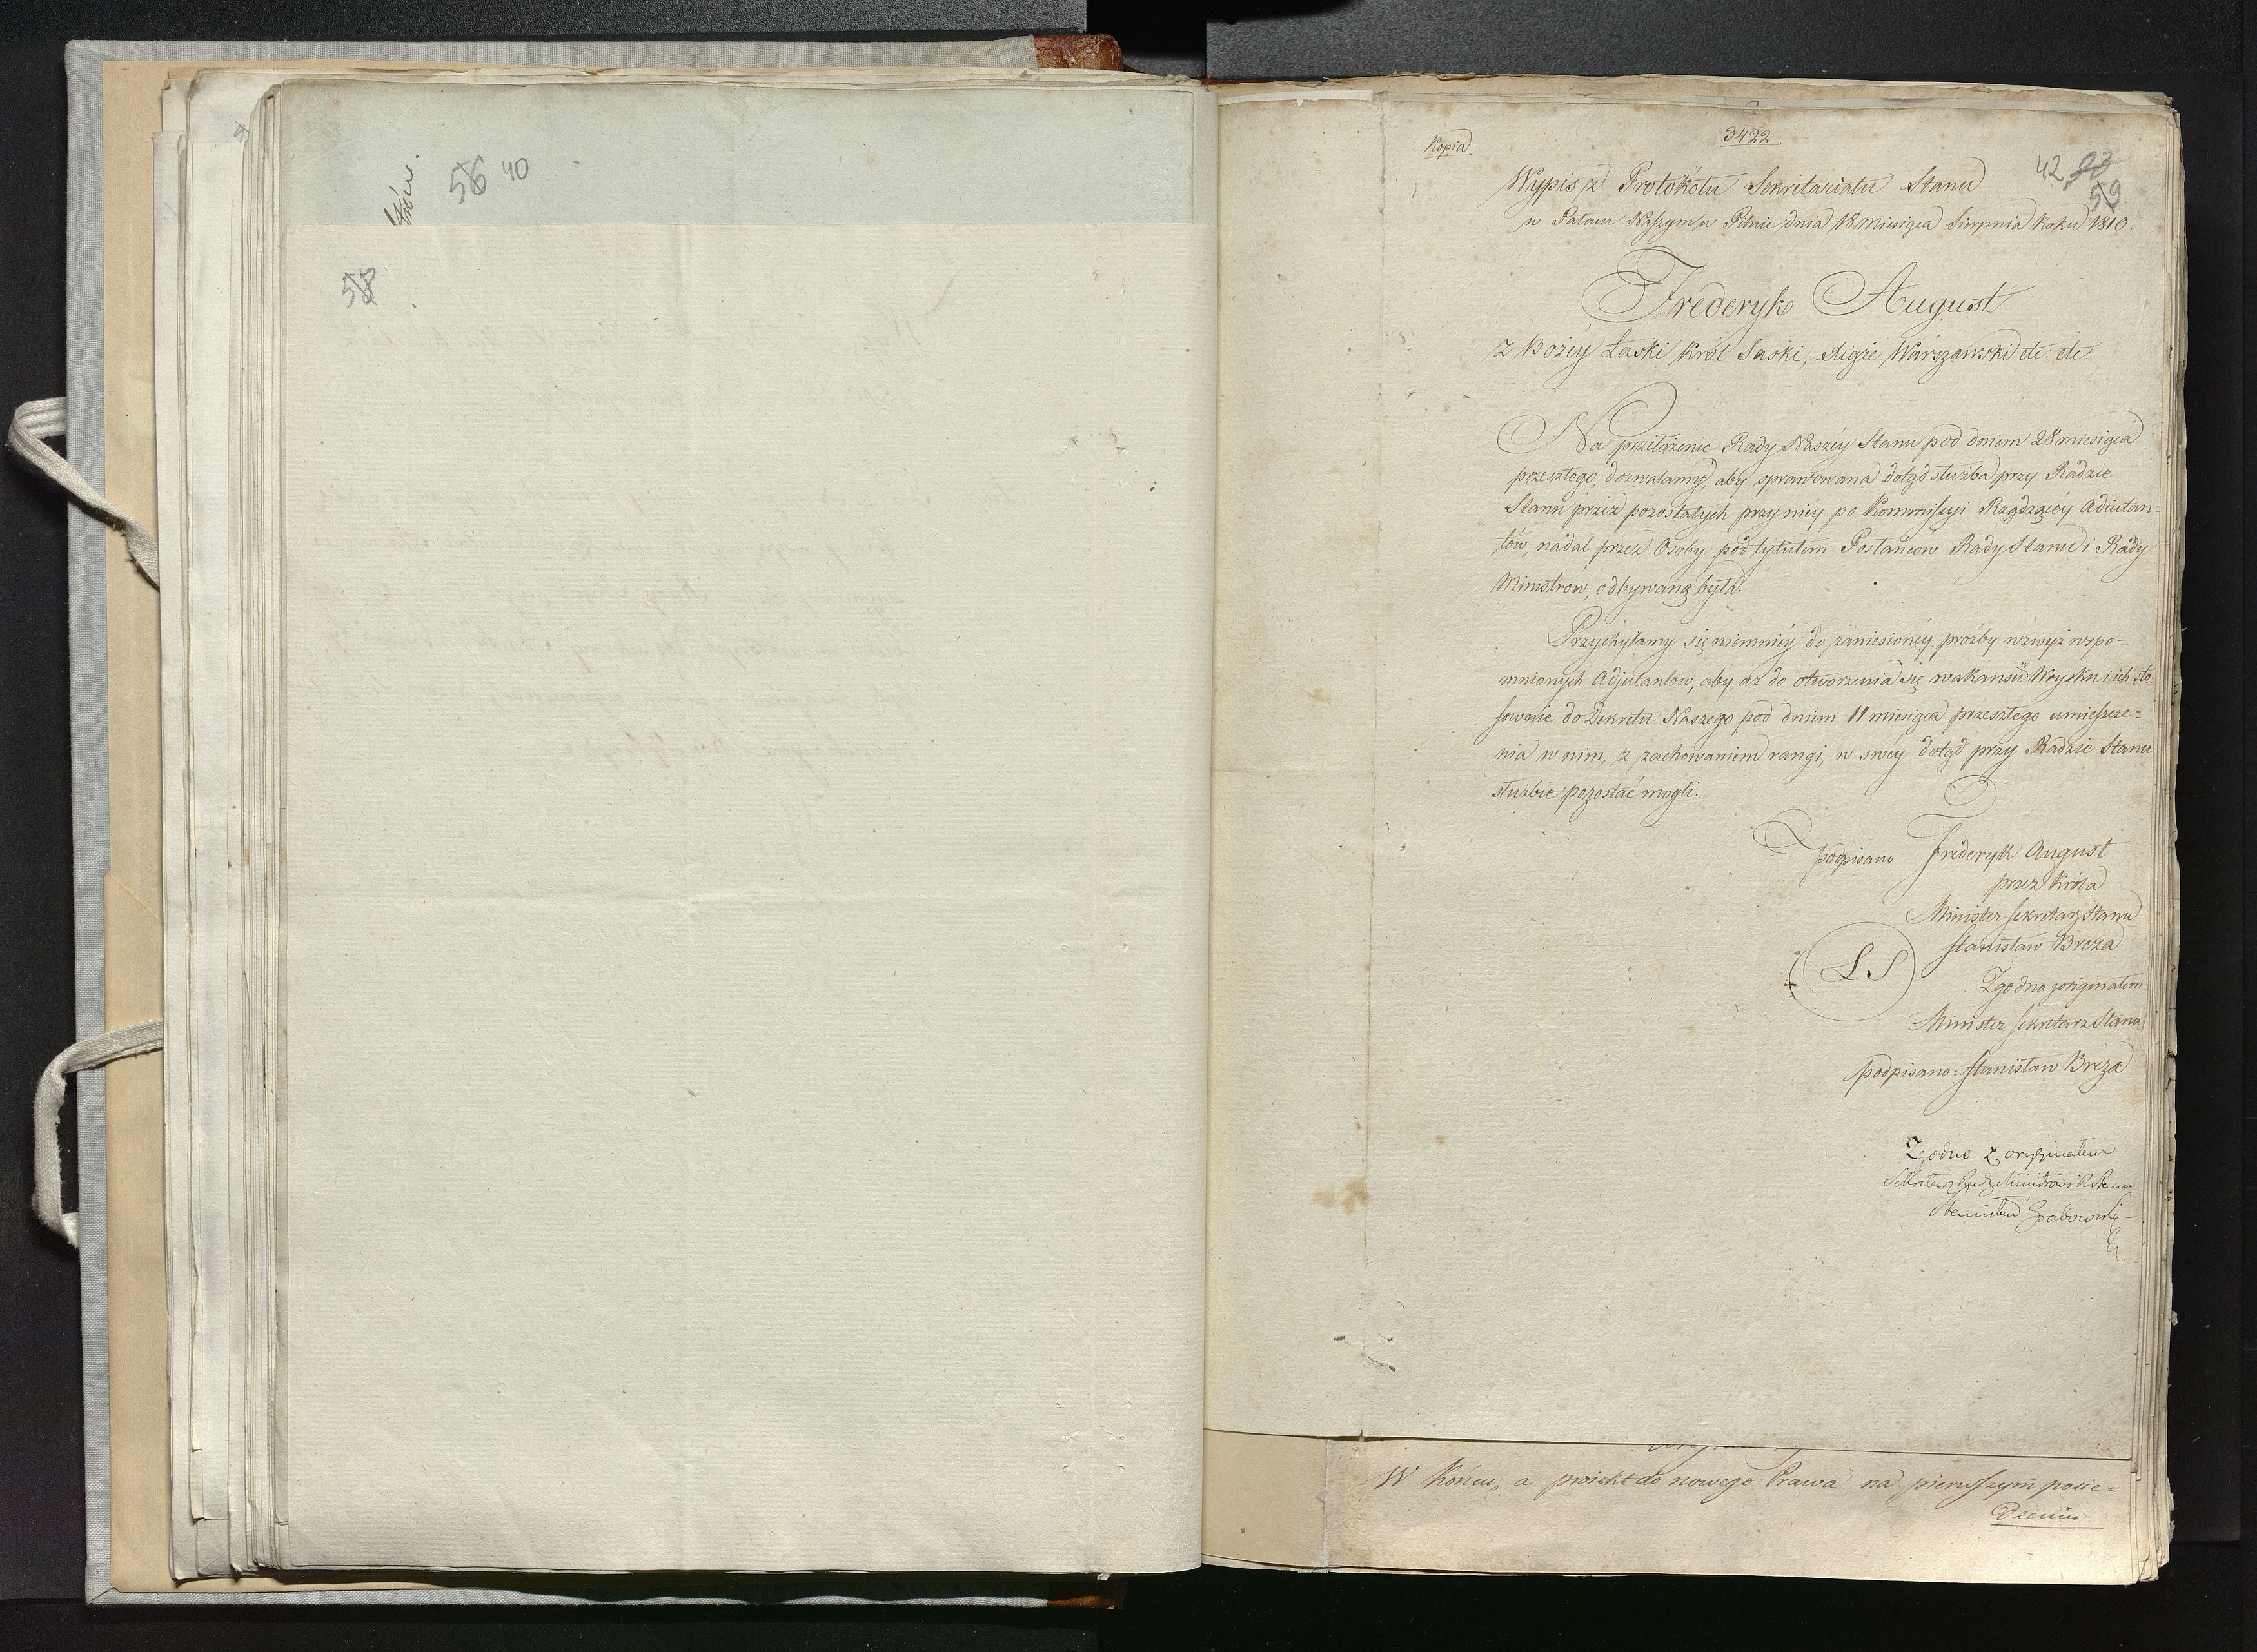 56 40
58
Kopia
3422.
42 93
59
Wypis z Protokółu Sekretariatu Stanu
w Pałacu Naszym w Pilnic dnia 18 Miesiąca Sierpnia Roku 1810.
Frederyk August
z Bożey Łaski Król Saski, Xiąże Warszawski etc: etc:
Na przełożenie Rady Naszéy Stanu pod dniem 28 miesiąca
przeszłego, dozwalamy, aby sprawowana dotąd służba przy Radzie
Stanu przéz pozostałych przy niéy po Kommissyi Rządzącéy Adiutan=
tów, nadal przez Osoby pod tytułem Posłańców Rady Stanu i Rady
Ministrów, odbywaną była.
Przychylamy się niemniéy do zaniesionéy prośby wzwyż wspo=
mnionych Adjutantow, aby, aż do otworzenia się wakansu w Woysku i ich sto=
sownie do Dekretu Naszego pod dniem 11 miesiąca przeszłego umieszcze=
nia w nim, z zachowaniem rangi, w swéy dotąd przy Radzie Stanu
służbie pozostać mogli.
podpisano Frederyk August
przez Króla
Minister Sekretarz Stanu
Stanisław Breza
L S
Zgodno z originałem
Minister Sekretarz Stanu
podpisano: Stanisław Breza
Zgodno z oryginałem
Sekretarz Rady Ministrow i R Stanu
Stanisław Grabowski
W Końcu, a proiekt do nowego Prawa na pierwszym posie=
dzeniu